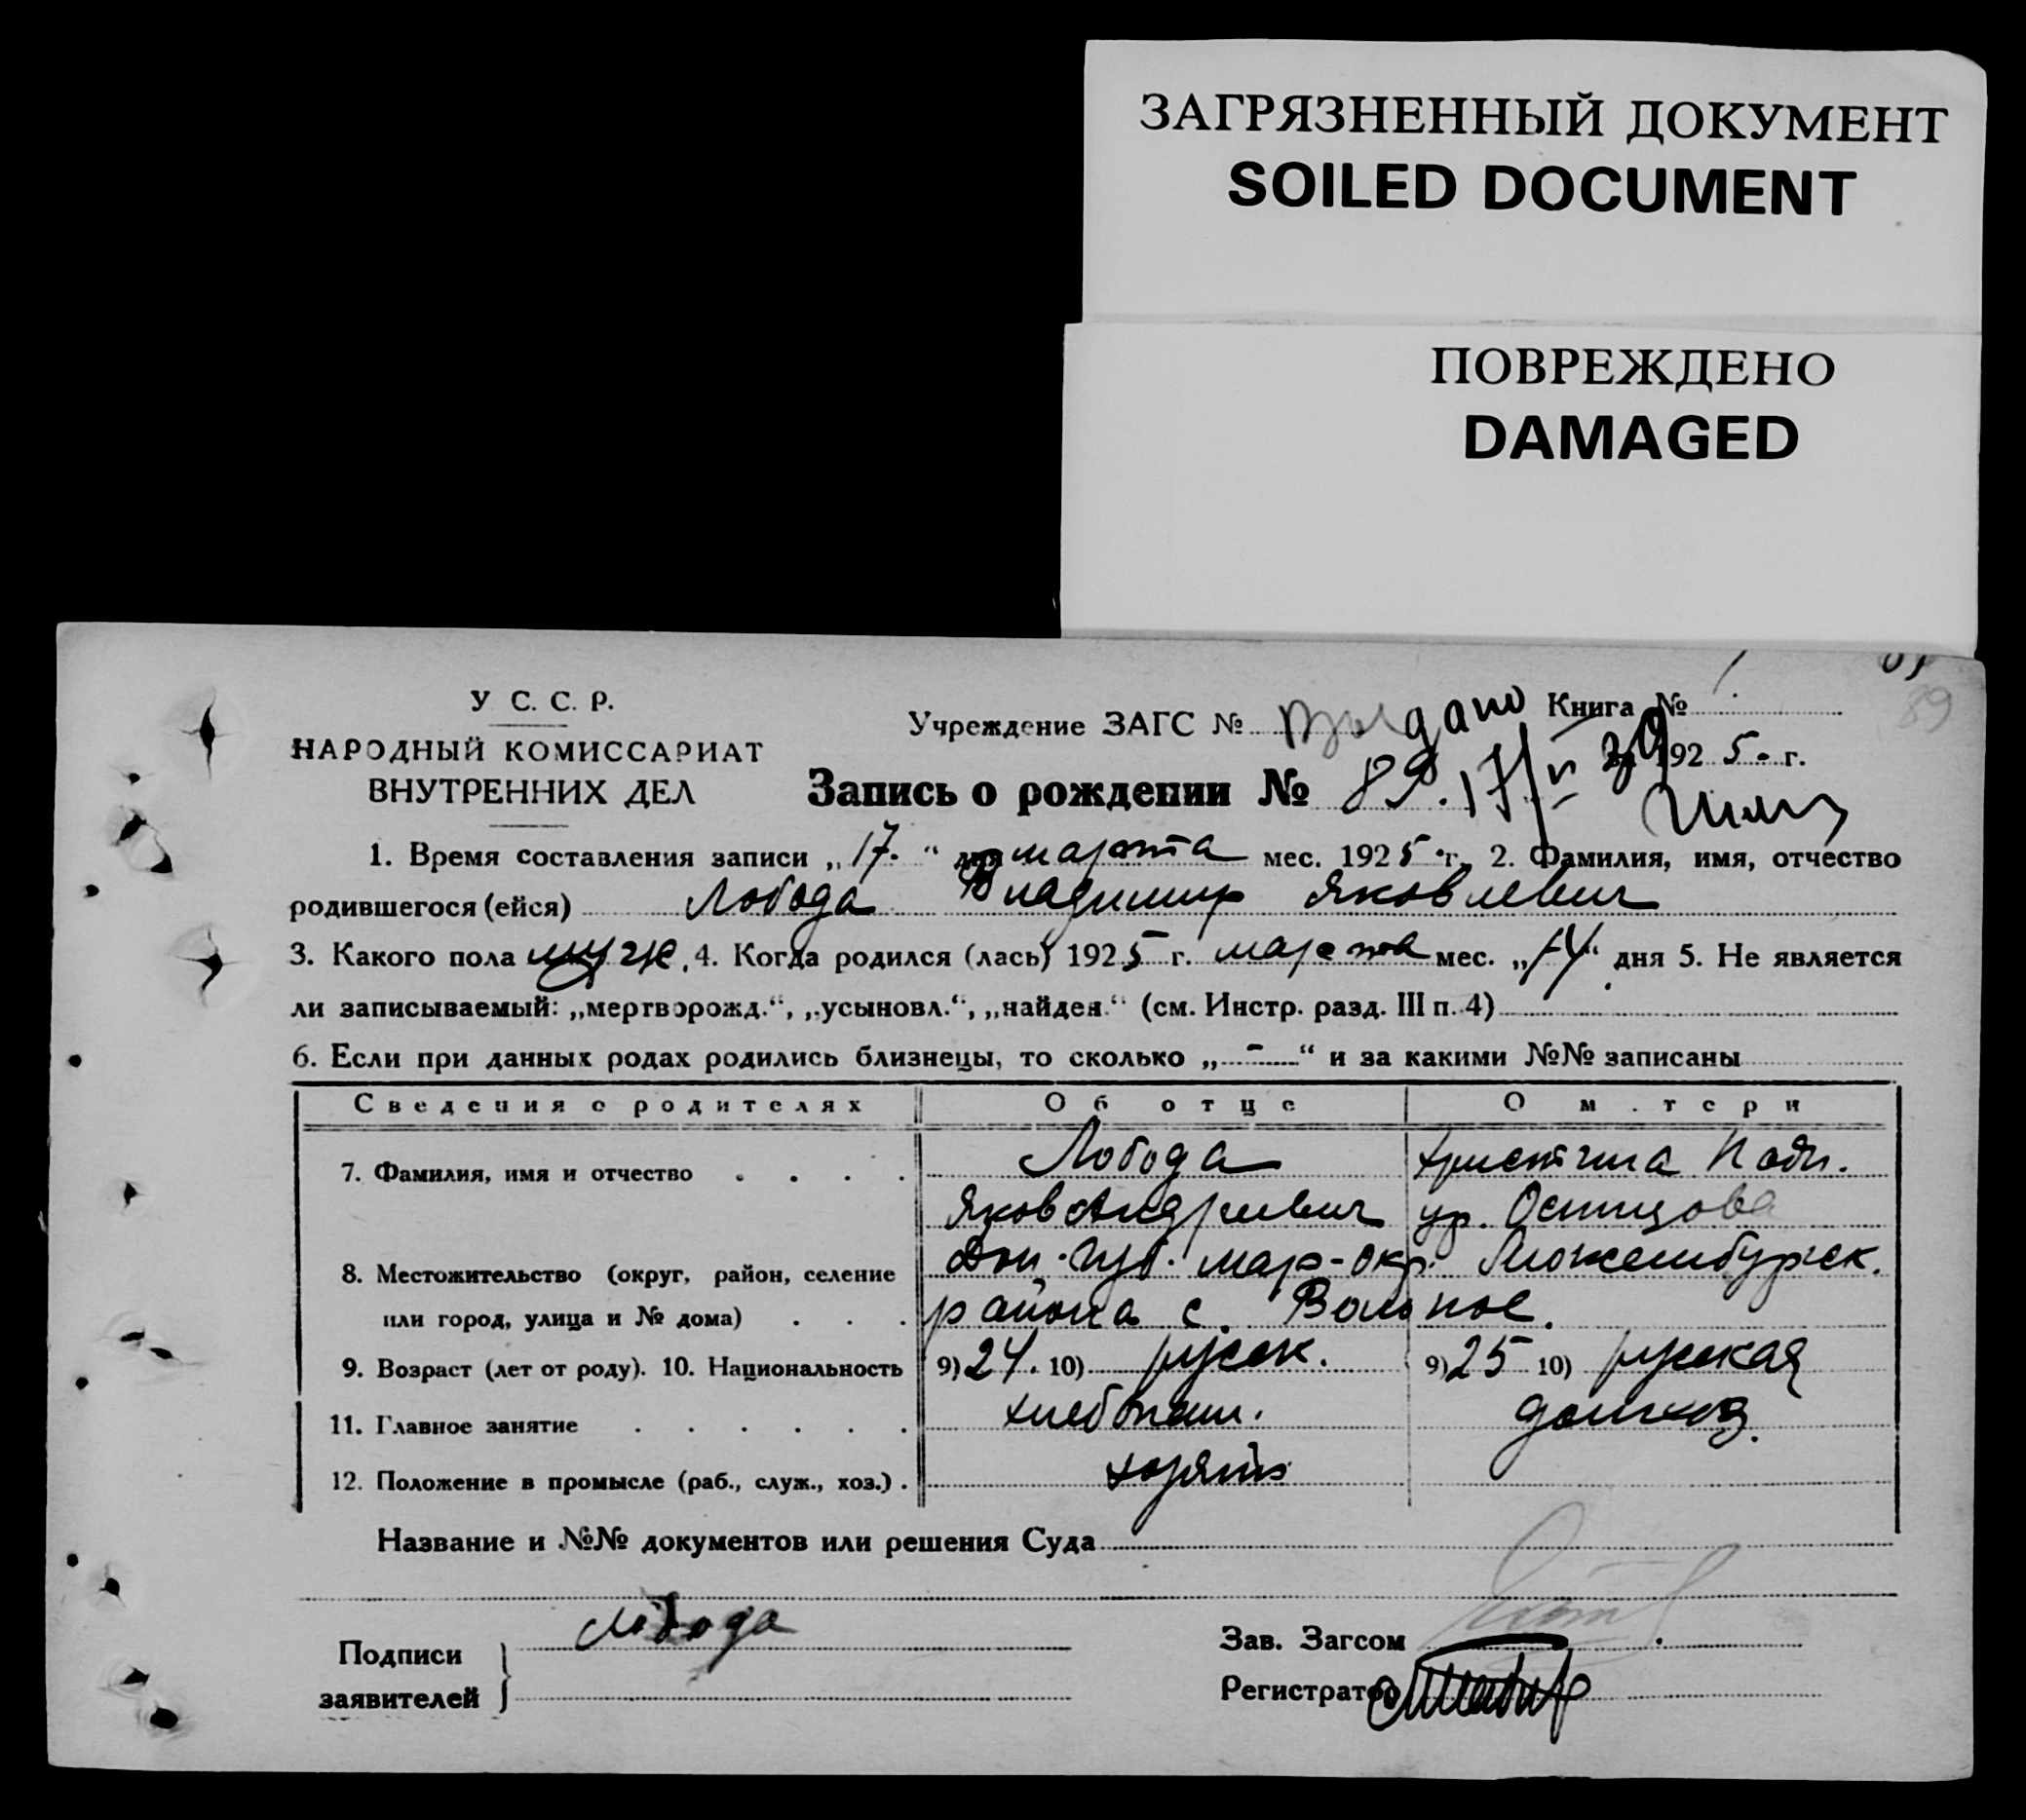 ЗАГРЯЗНЕННЫЙ ДОКУМЕНТ
SOILED DOCUMENT
ПОВРЕЖДЕНО
DAMAGED
У С. С. Р.
НАРОДНЫЙ КОМИССАРИАТ
ВНУТРЕННИХ ДЕЛ
Учреждение ЗАГС № Книга №
89
Запись о рождении № 89. 1925. г.
1. Время составления записи „17.“ дня марта мес. 1925 г. 2. Фамилия, имя, отчество
родившегося (ейся) Лобода Владимир Яковлевич
3. Какого пола муж. 4. Когда родился (лась) 1925 г. марта мес. „14“ дня 5. Не является
ли записываемый: „мертворожд.“, „усыновл.“, „найден.“ (см. Инстр. разд. III п. 4)
6. Если при данных родах родились близнецы, то сколько „-“ и за какими №№ записаны
Сведения о родителях Об отце О матери
7. Фамилия, имя и отчество Лобода Христина
Яков Андреевич ур.
8. Местожительство (округ, район, селение Дон. губ. Мар-окр. Люксембургск.
или город, улица и № дома) района с. Вольное.
9. Возраст (лет от роду). 10. Национальность 9) 24. 10) русск. 9) 25 10) русская
11. Главное занятие хлебопаш. домхоз.
12. Положение в промысле (раб., служ., хоз.)
Название и №№ документов или решения Суда
Подписи заявителей Лобода
Зав. Загсом
Регистратор